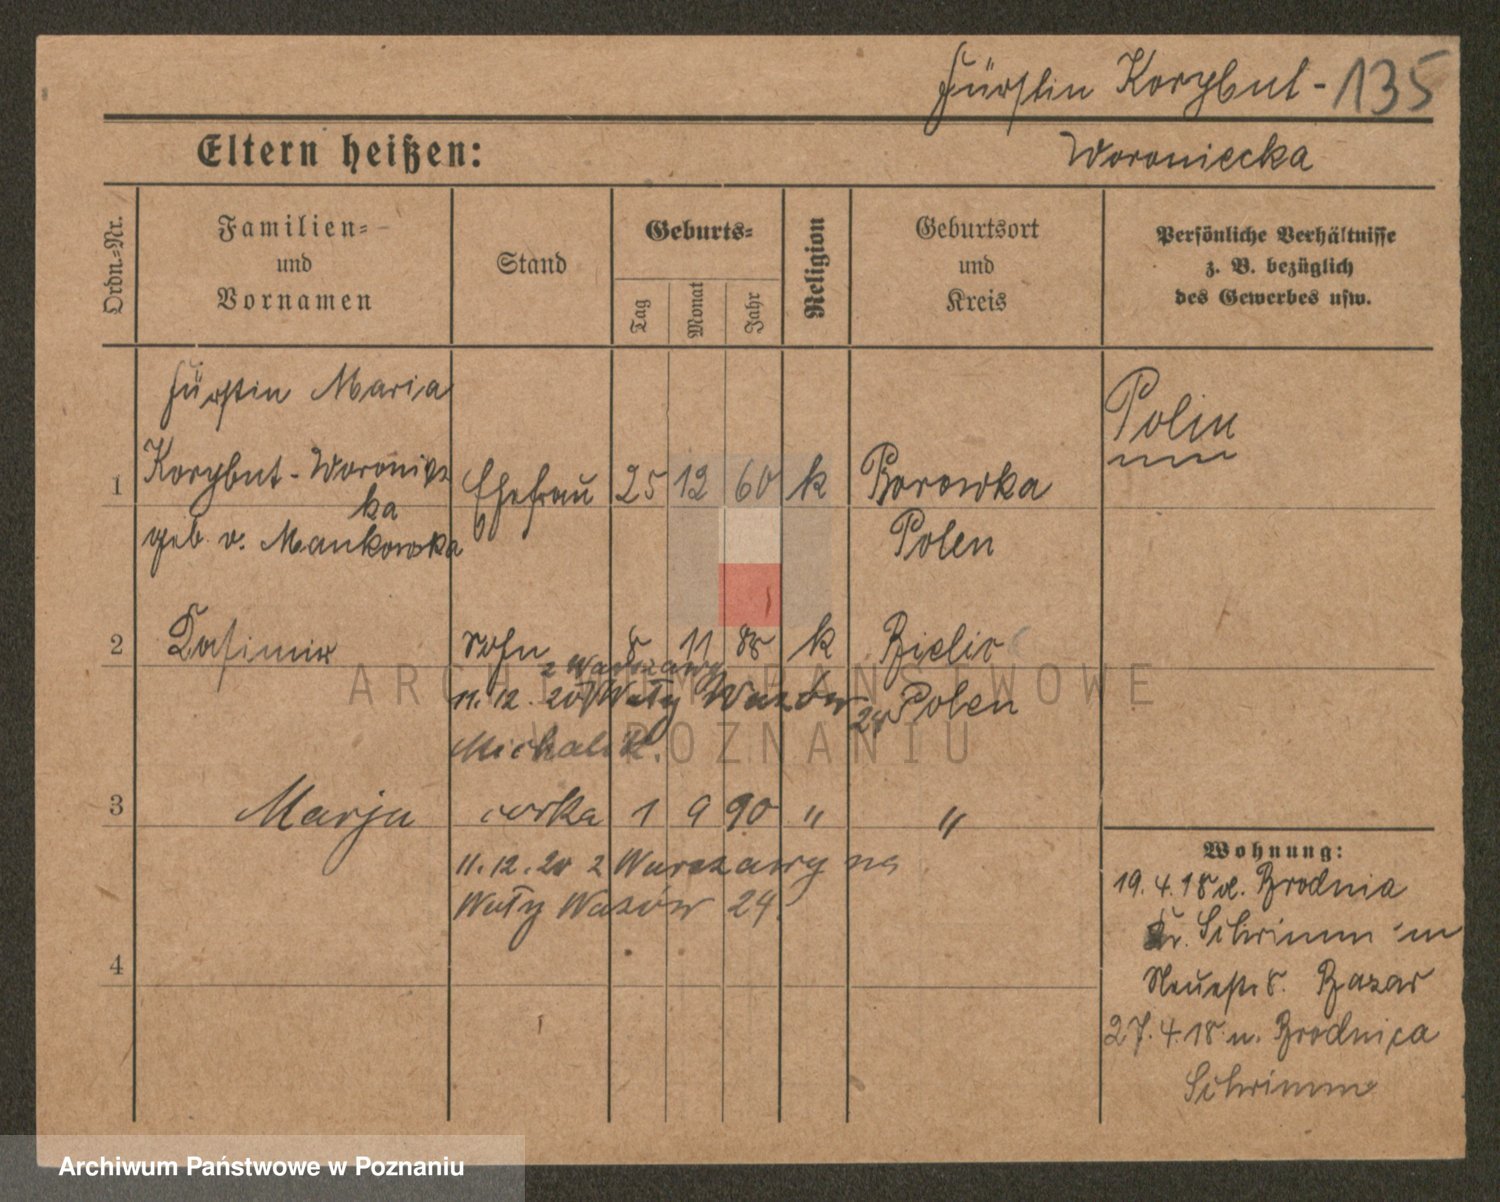 Fürstin Korybut- 135
Woroniecka
Eltern heißen:
Ordn.-Nr.
Familien-
und
Vornamen
Stand
Geburts-
Tag
Monat
Jahr
Religion
Geburtsort
und
Kreis
Persönliche Verhältnisse
z. B. bezüglich
des Gewerbes usw.
Fürstin Maria
Polin
1 Korybut-Woroniec Ehefrau 25 12 60 k Borowka
ka
geb. v. Mankowska Polen
2 Kasimir Sohn 8 11 88 k Bielic
z Warszawy
11. 12. 20 Wały Wazów 24 Polen
Michalik.
3 Marja corka 1 9 90 " "
11. 12. 20 z Warszawy na
Wały Wazów 24.
4
Wohnung:
19. 4. 18 v. Brodnia
Kr. Schrimm in
Neuestr 8. Bazar
27. 4. 18. n. Brodnica
Schrimm
ARCHIWUM PAŃSTWOWE
W POZNANIU
Archiwum Państwowe w Poznaniu